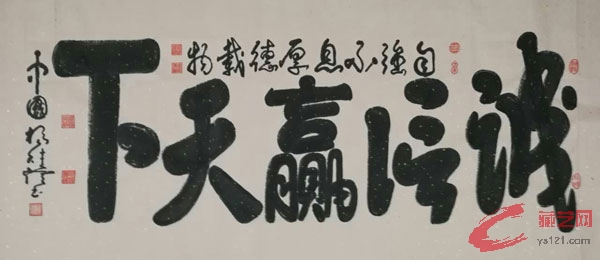 自強不息厚德載物
誠信贏天下
中國
藏艺网
ys121.com